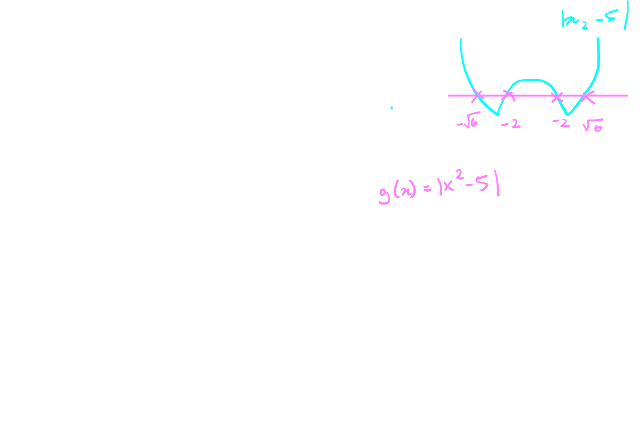 |x₂ - 5|
-√6 -2 -2 √6
g(x) = |x² - 5|